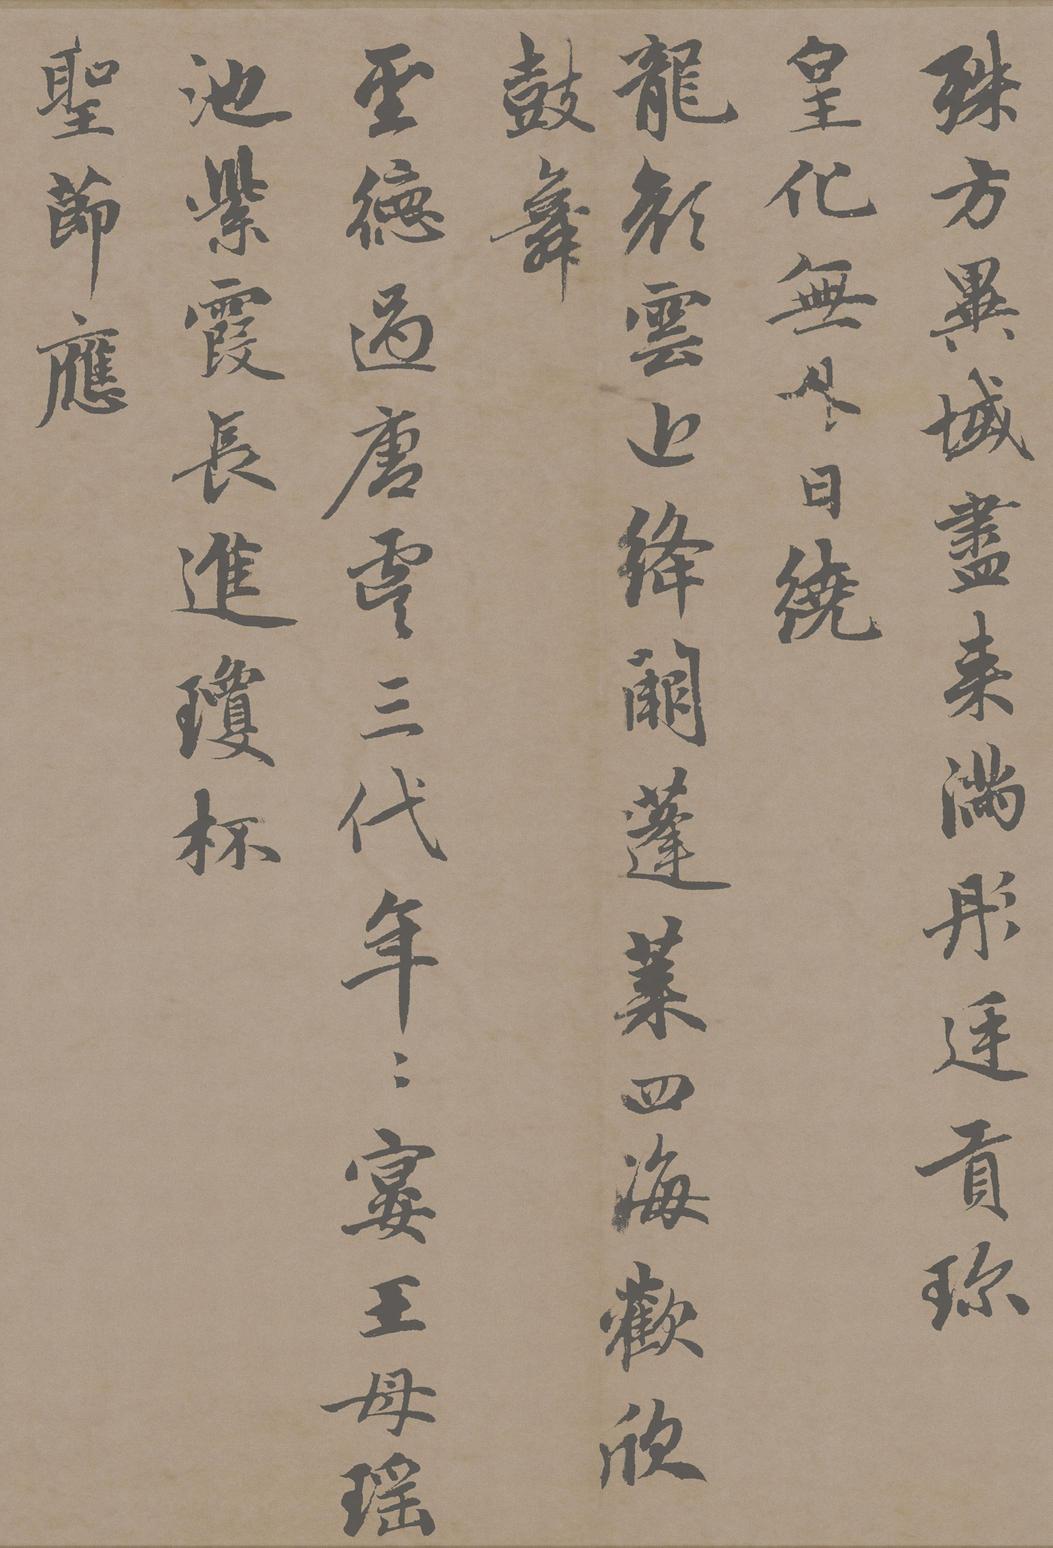 殊方異域盡来滿彤廷貢珎
皇化無外日繞
龍顏雲近絳闕蓬莱四海歡欣
鼓舞
聖德過唐虞三代年〻宴王母瑶
池紫霞長進瓊杯
聖節應